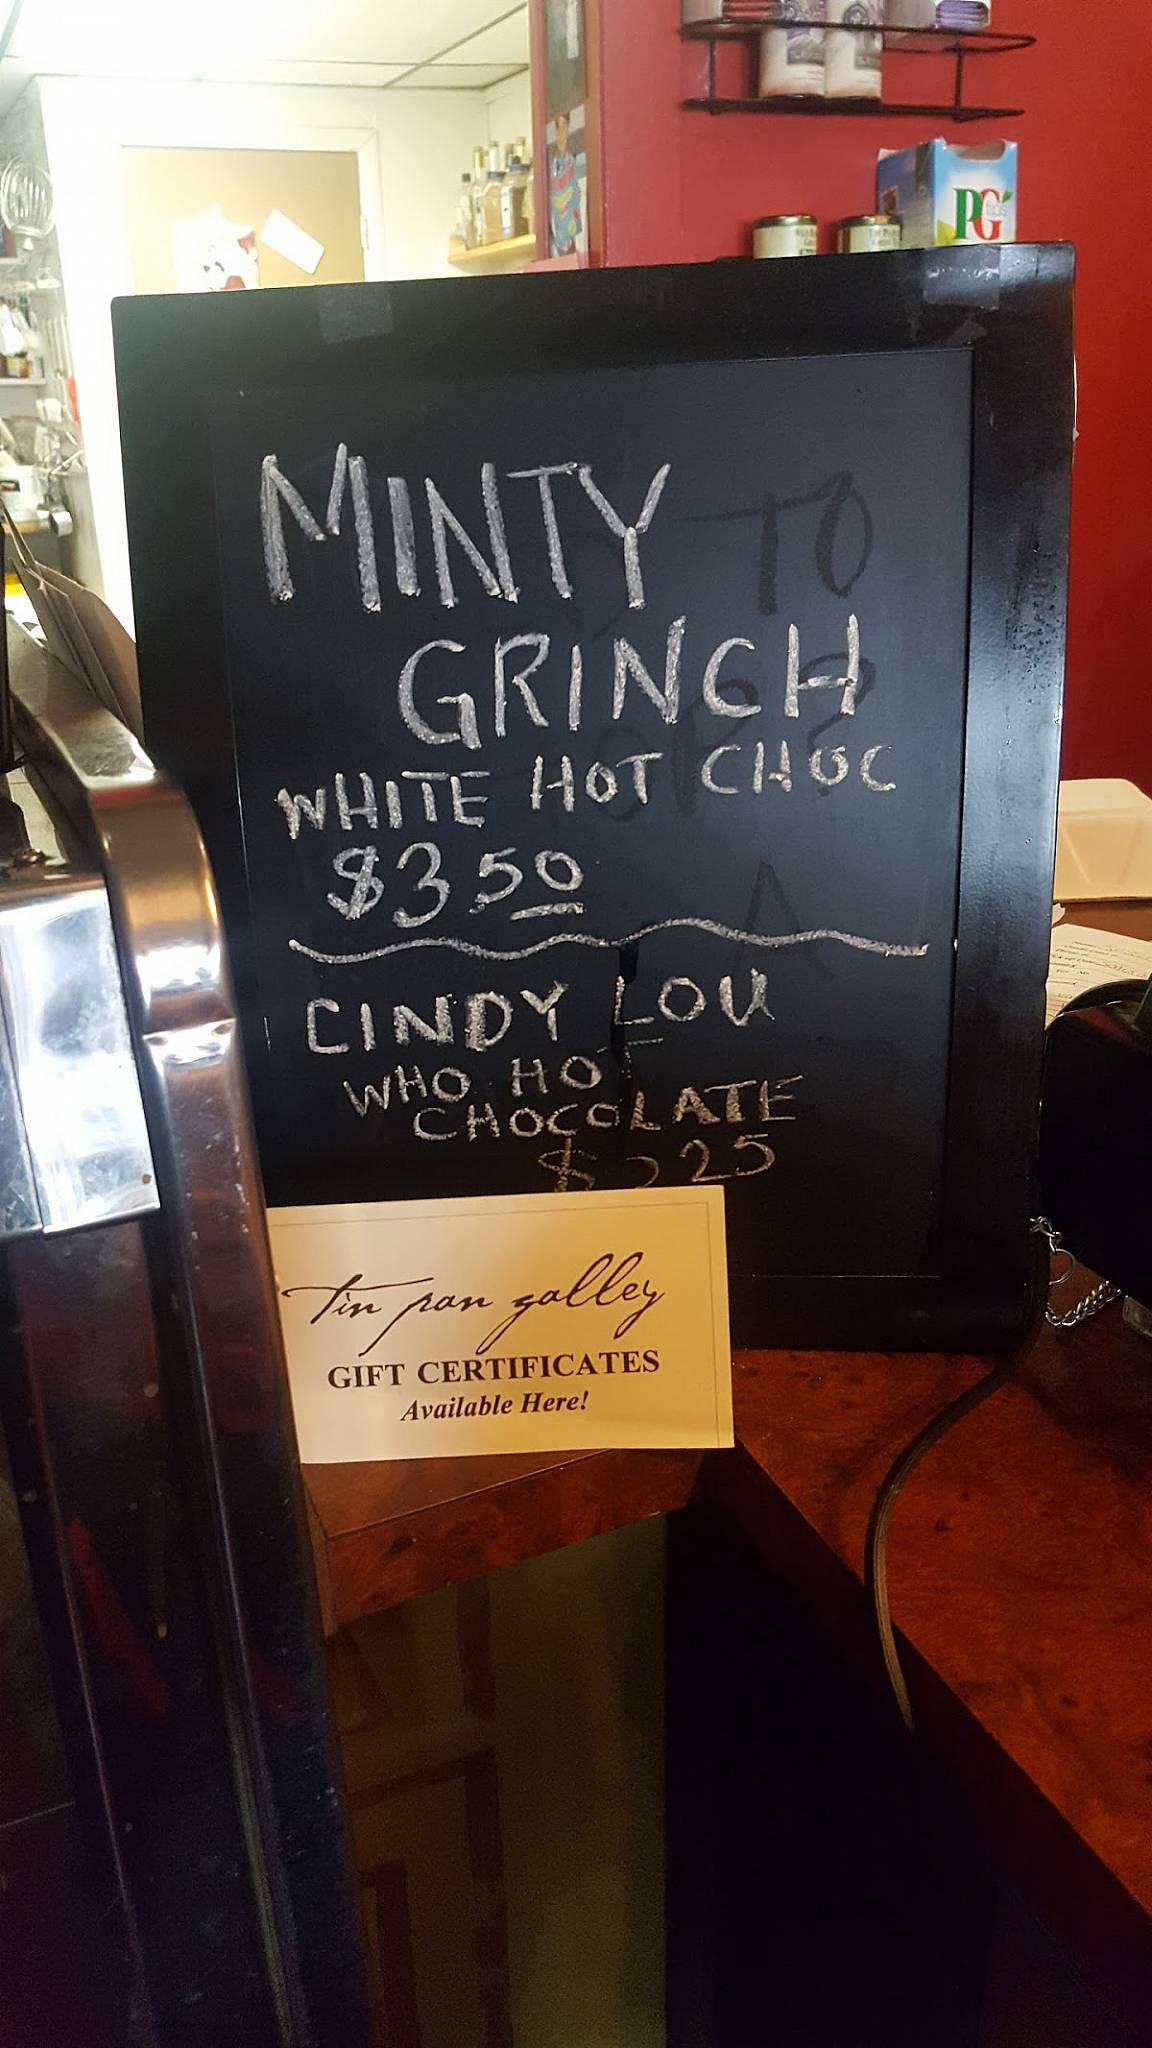 PG
tips
MINTY
GRINCH
WHITE HOT CHOC
$3 50
CINDY LOU
WHO HOT
CHOCOLATE
$2 25
tin pan galley
GIFT CERTIFICATES
Available Here!